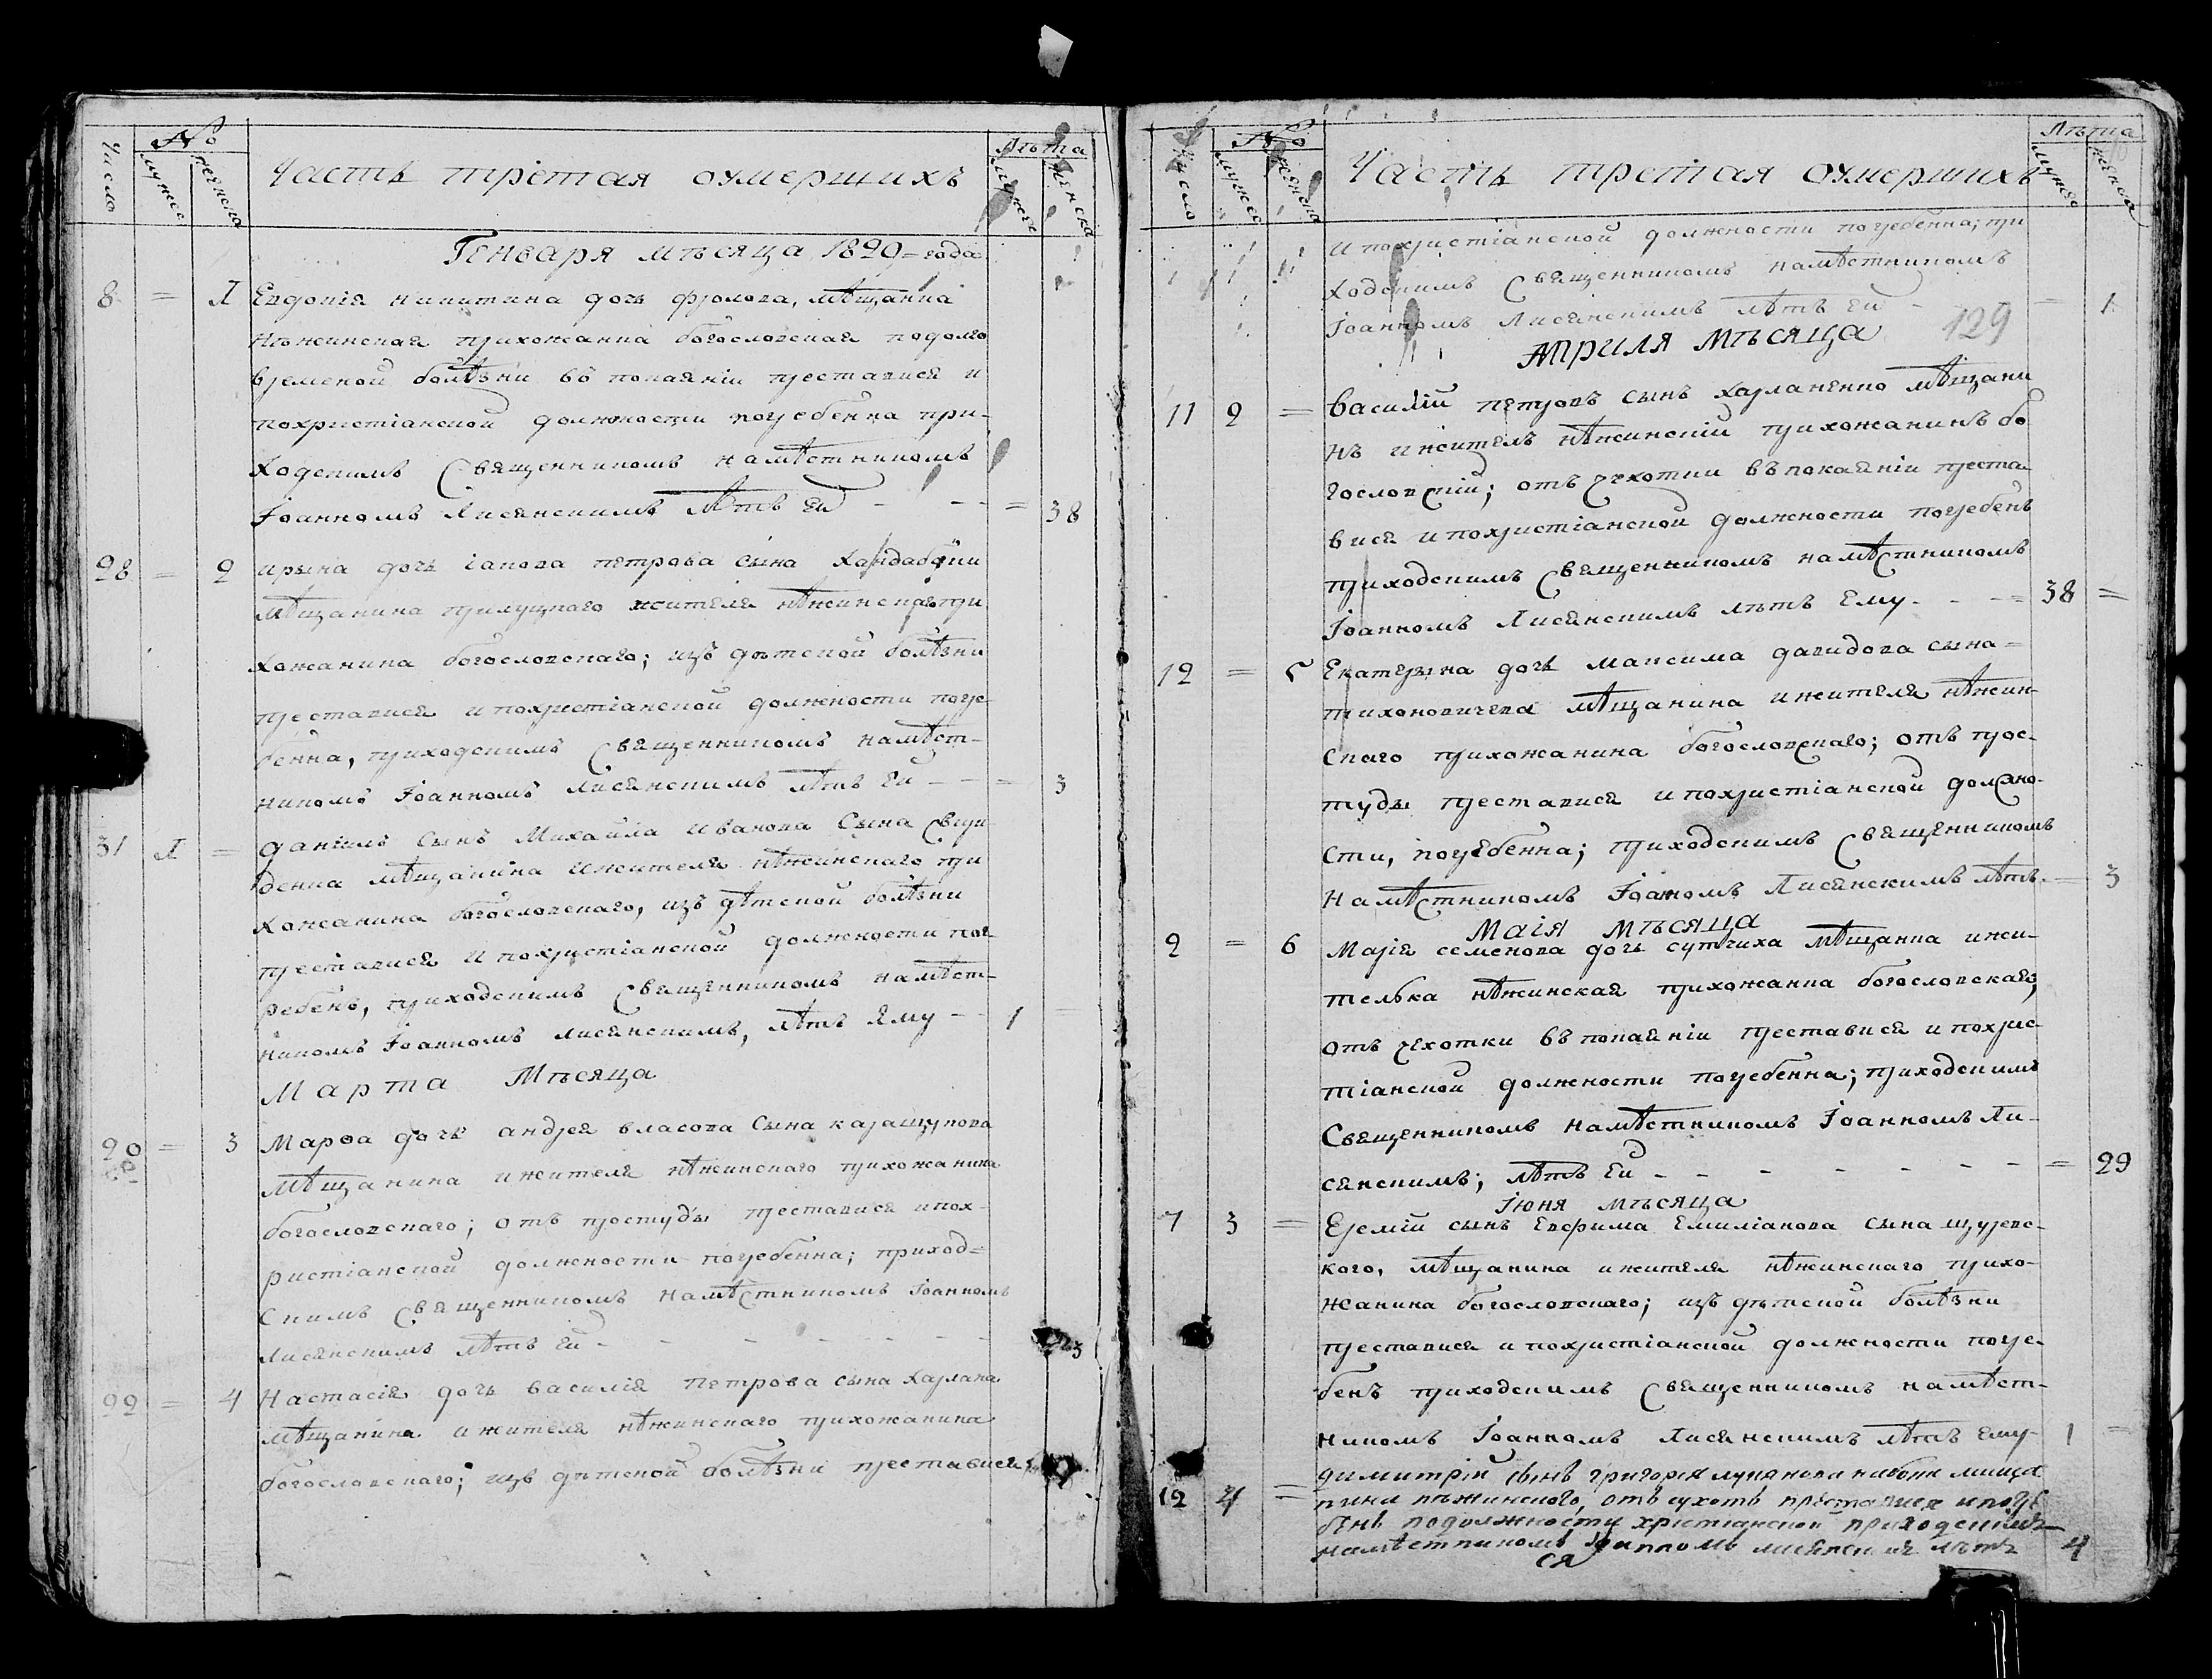 Число
№
мужес
женска
Часть третая оумершихъ
Лѣта
мужес
женска
Генваря мѣсяца 1820=года
8 = 1 Евдокія никитина дочь фролова, мѣщанка
Нѣжинская прихожанка богословская подолго
временой болѣзни въ покаяніи преставися и
похристіанской должности погребенна при-
ходскимъ Священникомъ намѣстникомъ
Іоанномъ Лисянскимъ лѣтъ ей - - - = 38
28 = 2 ирына дочь іакова петрова сына
мѣщанина прилуцкаго жителя нѣжинскаго при
хожанина богословскаго; изъ дѣтской болѣзни
преставися и похристіанской должности погре-
бенна, приходскимъ Священникомъ намѣст-
никомъ Іоанномъ Лисянскимъ лѣтъ ей - - = 3
31 1 = даніилъ сынъ Михаила иванова сына
мѣщанина ижителя нѣжинскаго при
хожанина богословскаго, изъ дѣтской болѣзни
преставися и похристіанской должности пог-
ребенъ, приходскимъ Священникомъ намѣст-
никомъ Іоанномъ лисянскимъ, лѣтъ ему - - 1 =
Марта Мѣсяца
20 = 3 Марѳа дочь андрея власова сына каращукова
мѣщанина ижителя нѣжинскаго прихожанина
богословскаго; отъ простуды преставися ипох-
ристіанской должности погребенна; приход=
скимъ Священникомъ намѣстникомъ Іоанномъ
Лисянскимъ лѣтъ ей - - - - - - 3
22 = 4 Настасія дочь василія петрова сына харлана
мѣщанина ижителя нѣжинскаго прихожанина
богословскаго; изъ дѣтской болѣзни преставися
Число
№
мужес
женска
Часть третая оумершихъ
Лѣта
мужес
женска
ипохристіанской должности погребенна; при
ходскимъ Священникомъ намѣстникомъ
Іоанномъ Лисянскимъ лѣтъ ей - = 1
129
Априля мѣсяца
11 2 = Василій петровъ сынъ харланенко мѣщани
нъ ижитель нѣжинскій прихожанинъ бо
гословскій; отъ чехотки въ покаяніи преста
вися ипохристіанской должности погребенъ
приходскимъ Священникомъ намѣстникомъ
Іоанномъ Лисянскимъ лѣтъ ему - - - = 38 =
12 = 5 Екатерына дочь максима давидова сына =
тихоновичева мѣщанина ижителя нѣжин-
скаго прихожанина богословскаго; отъ прос-
туды преставися ипохристіанской должно-
сти, погребенна; приходскимъ Священникомъ
намѣстникомъ Іоаномъ Лисянскимъ лѣтъ - = 3
Маія мѣсяца
2 = 6 Марія семенова дочь мѣщанка ижи-
телька нѣжинская прихожанка богословская,
отъ чехотки въ покаяніи преставися и похрис-
тіанской должности погребенна; приходскимъ
Священникомъ намѣстникомъ Іоанномъ Ли-
сянскимъ; лѣтъ ей - - - - - - - - = 29
Іюня мѣсяца
7 3 = Еремій сынъ Евфима Емиліанова сына щуревс-
кого, мѣщанина ижителя нѣжинскаго прихо-
жанина богословскаго; изъ дѣтской болѣзни
преставися и похристіанской должности погре-
бенъ приходскимъ Священникомъ намѣст-
никомъ Іоанномъ Лисянскимъ лѣтъ ему - 1 =
12 4 = димитрій сынъ григорія мища
нина нѣжинского, отъ сухотъ преставися ипогре
бенъ подолжности христіанской приходскимъ
намѣстникомъ Іоанномъ лисянским лѣтъ 4
ся